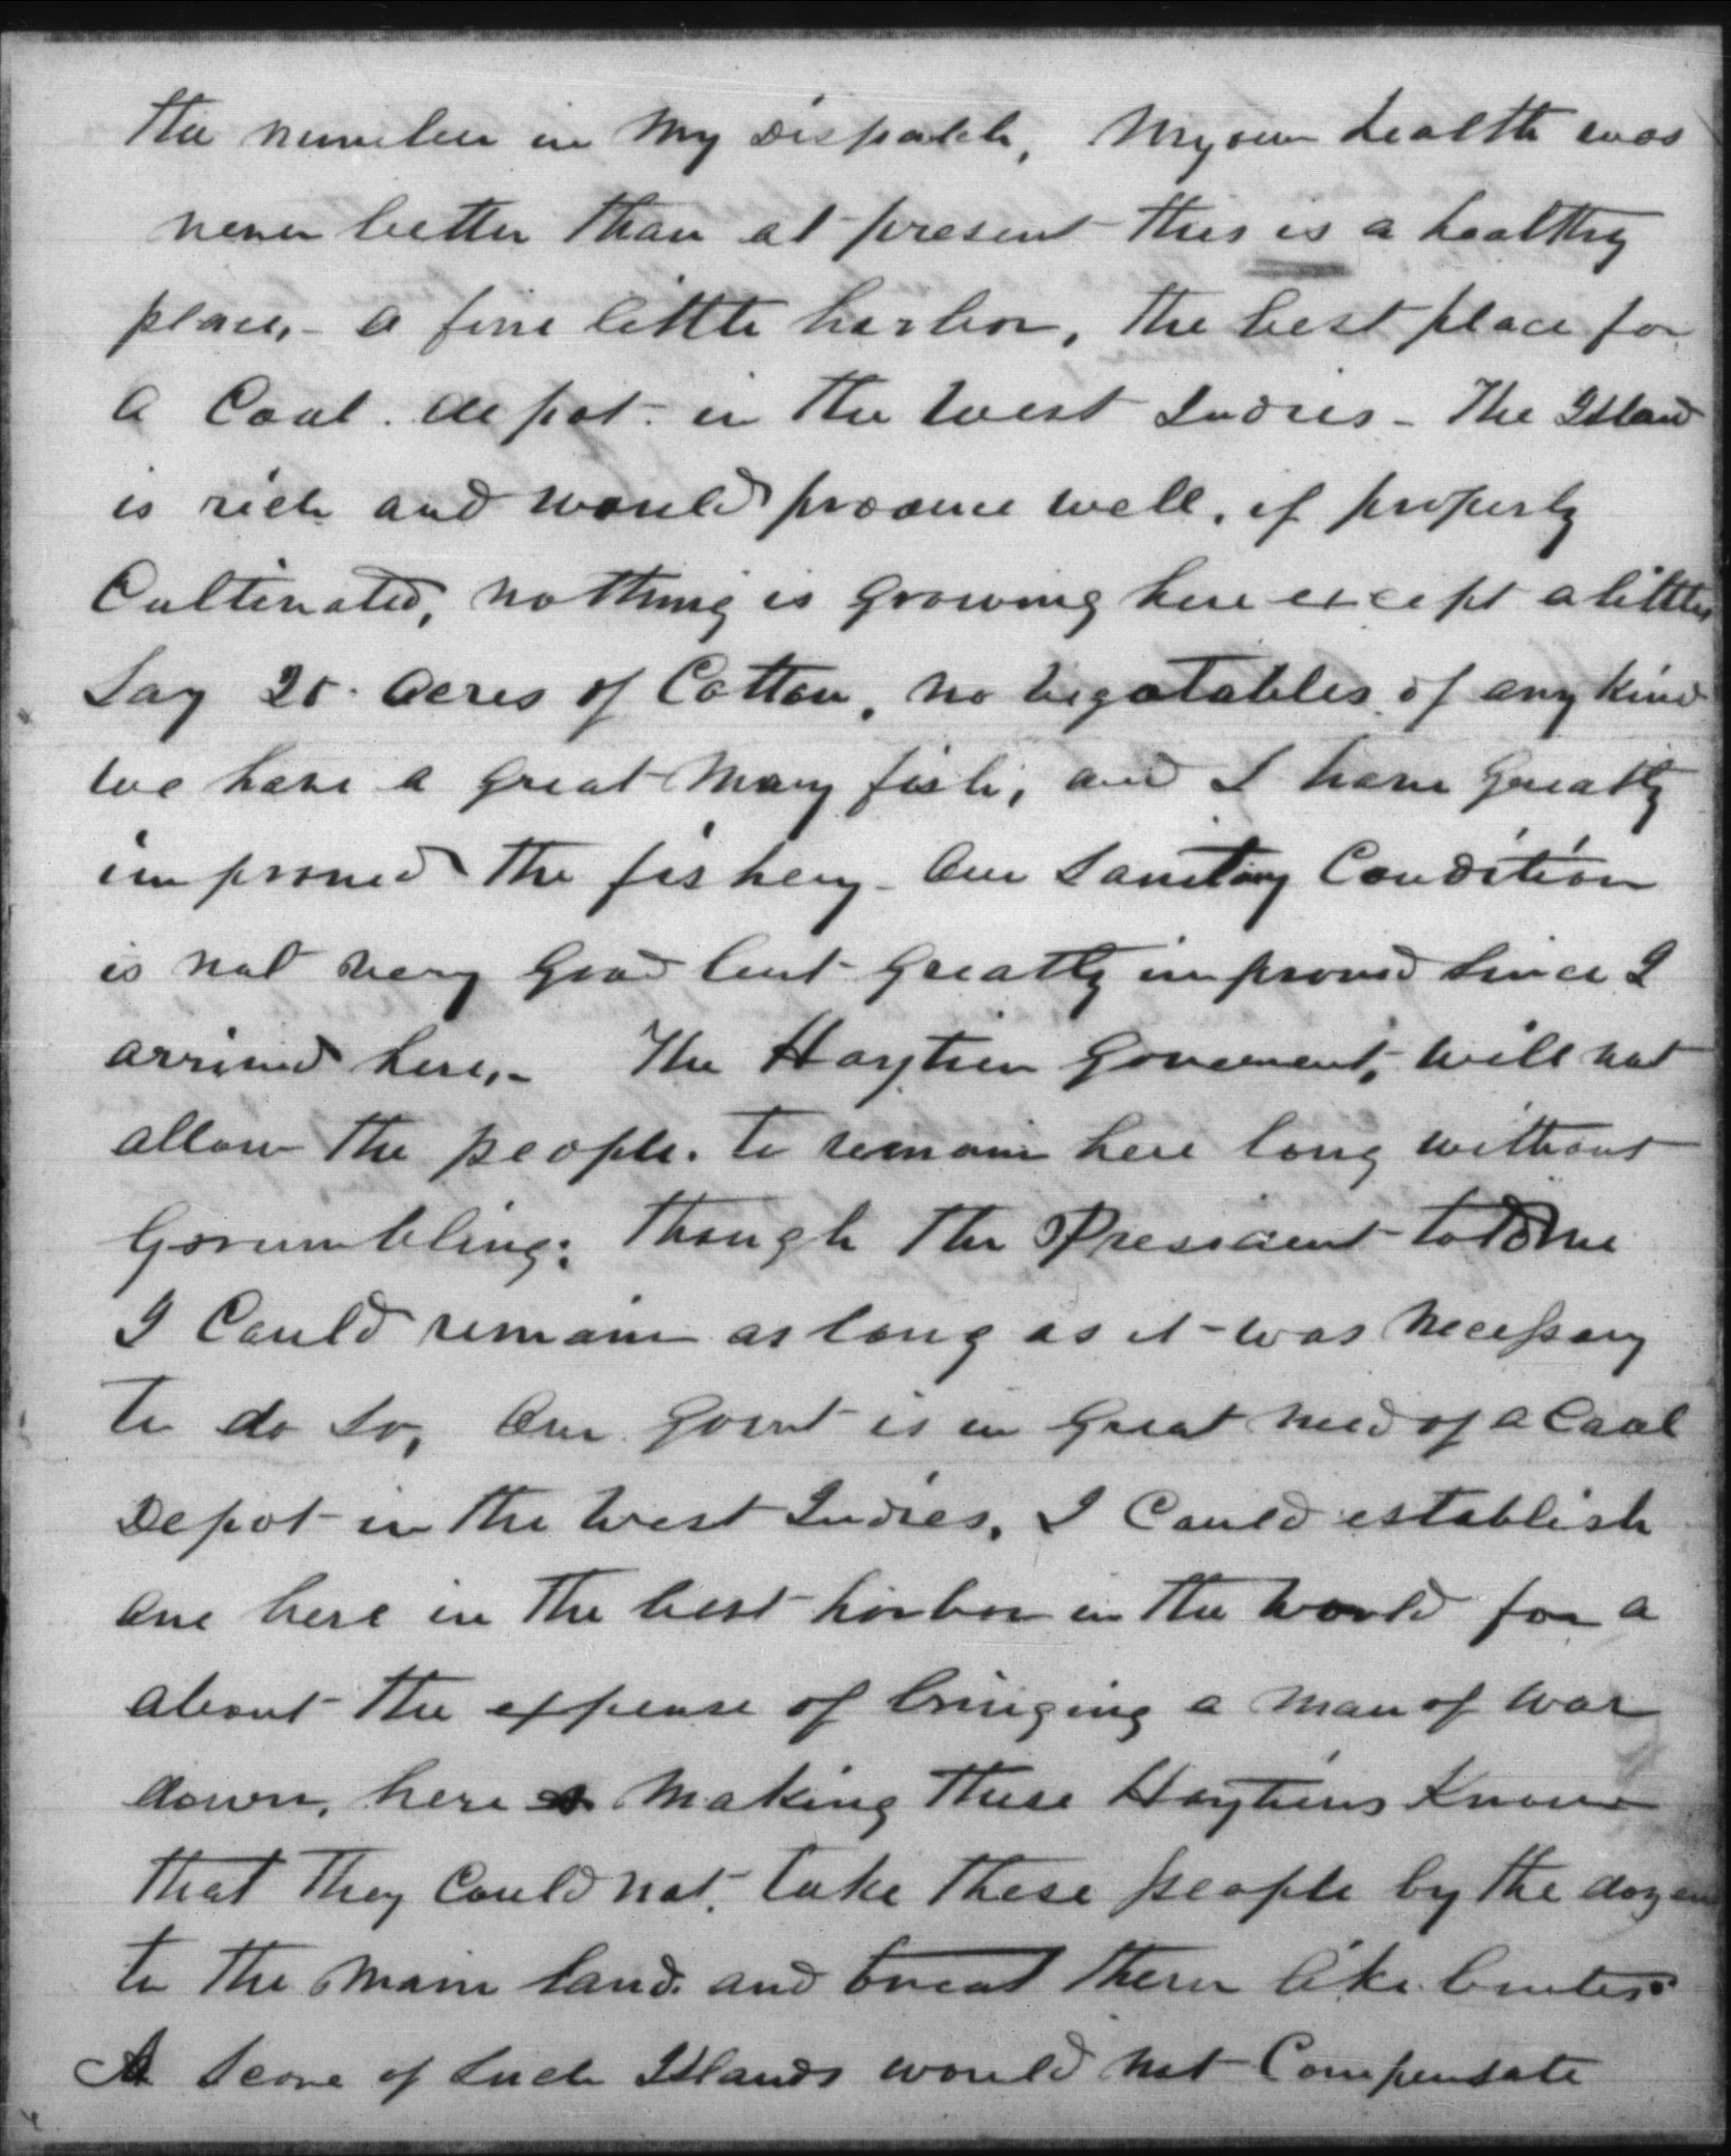 the number in my Dispatch, My own health was
never better than at present this is a healthy
place,- a fine little harbor, the best place for
a Coal depot in the West Indies - The Island
is rich and would produce well, if properly
Cultivated, nothing is growing here except a little
Say 20 Acres of Cotton, no vegatables of any kind
we have a great many fish, and I have greatly
improved the fishery - Our Sanitary Condition
is not very good but greatly improved since I
arrived here,- The Haytien Goverment, will not
allow the people to remain here long without
Grumbling; though the President told me
I Could remain as long as it was necessary
to do so, Our Govnt is in great need of a Coal
Depot in the West Indies, I Could establish
one here in the best harbor in the world for a
about the expense of bringing a man of war
down, here & making these Haytiens Know
that they Could not, take these people by the dozen
to the main land and treat them like brutes.
A Score of such Islands would not Compensate